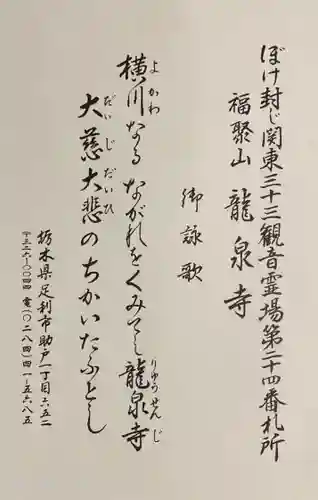 ぼけ封じ関東三十三観音霊場第二十四番札所
福聚山 龍泉寺
御詠歌
横川なる ながれをくみてし 龍泉寺
よかわ
りゅうせんじ
大慈大悲の ちかいたふとし
だいじだいひ
栃木県足利市助戸一丁目六五二
〒三二六-〇〇四四 電(〇二八四)四一-五六八五